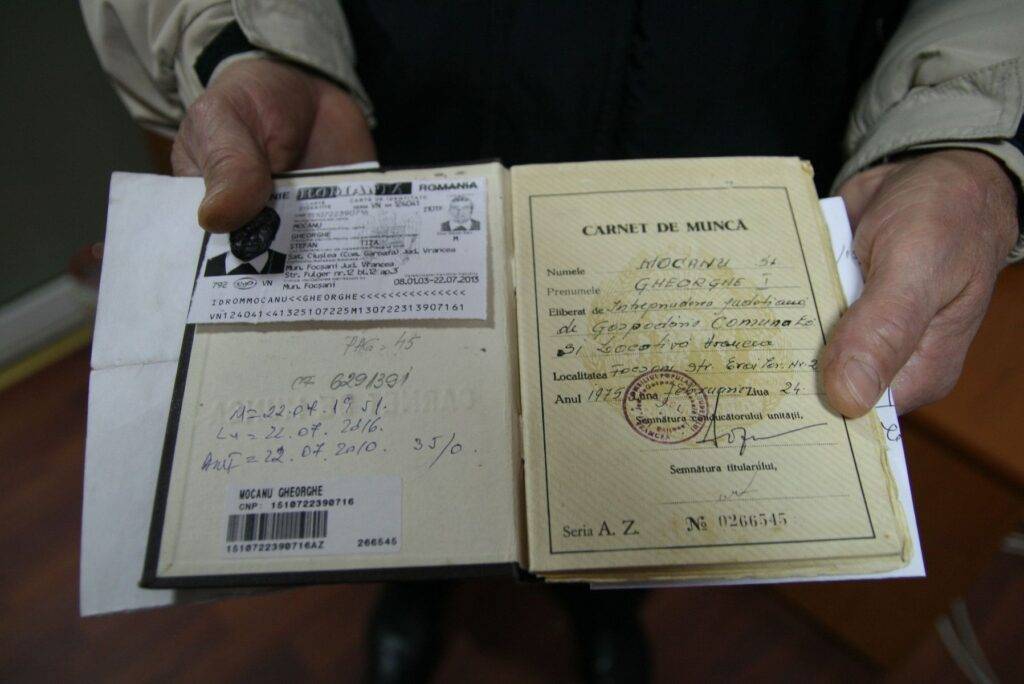 ROMANIA ROMANIA
CARTE DE IDENTITATE
SERIA VN NR 124041
MOCANU
GHEORGHE
STEFAN TITA
Sat. Cluşlea (Com. Garoafa) Jud. Vrancea
Mun. Focşani Jud. Vrancea
Str. Fulger nr.12 bl.12 ap.3
792 VN
Mun. Focşani
08.01.03-22.07.2013
M
IDROMMOCANU<<GHEORGHE<<<<<<<<<<<<<<<
VN124041<41325107225M130722313907161
PAG = 45
6291391
22.07.2010. 35/0
MOCANU GHEORGHE
CNP: 1510722390716
1510722390716AZ 266545
CARNET DE MUNCĂ
Numele MOCANU St
Prenumele GHEORGHE I
Eliberat de Intreprinderea Județeană
de Gospodărie Comunală
și Locativă Vrancea
Localitatea Focșani str. Eroilor Nr. 2
Anul 1975 Luna februarie Ziua 24
Semnătura conducătorului unităţii,
Semnătura titularului,
Seria A. Z. № 0266545